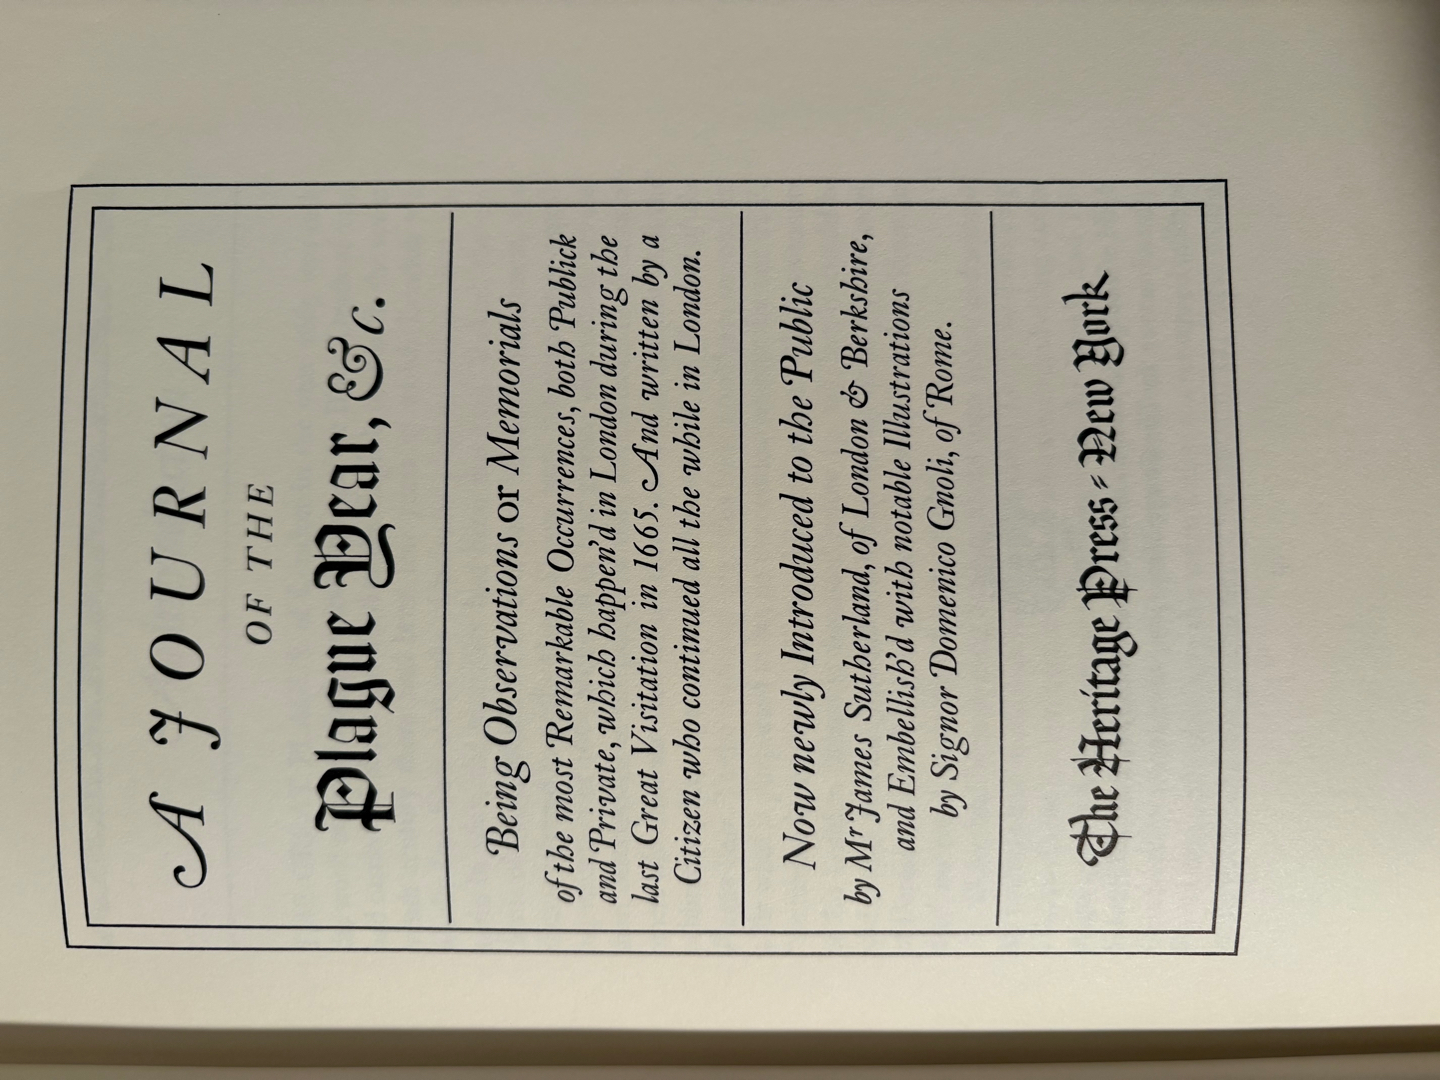 A JOURNAL
OF THE
Plague Year, &c.
Being Observations or Memorials
of the most Remarkable Occurrences, both Publick
and Private, which happen'd in London during the
last Great Visitation in 1665. And written by a
Citizen who continued all the while in London.
Now newly Introduced to the Public
by Mr James Sutherland, of London & Berkshire,
and Embellish'd with notable Illustrations
by Signor Domenico Gnoli, of Rome.
The Heritage Press - New York